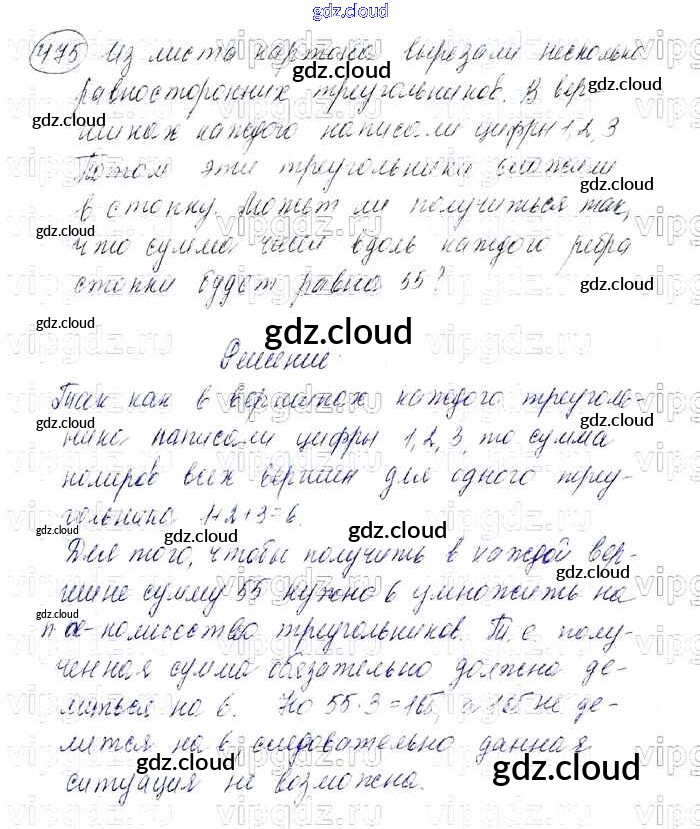 gdz.cloud
475 Из листа картона вырезали несколько
равносторонних треугольников. В вер-
шинах каждого написали цифры 1, 2, 3
Потом эти треугольники сложили
в стопку. Может ли получиться так,
что сумма чисел вдоль каждого ребра
стопки будет равна 55?
Решение.
Так как в вершинах каждого треуголь-
ника написали цифры 1, 2, 3, то сумма
номеров всех вершин для одного треу-
гольника 1+2+3=6.
Для того, чтобы получить в каждой вер-
шине сумму 55 нужно 6 умножить на
n - количество треугольников. Т. е. полу-
ченная сумма обязательно должна де-
литься на 6. Но 55·3=165, а 165 не де-
лится на 6, следовательно данная
ситуация не возможна.